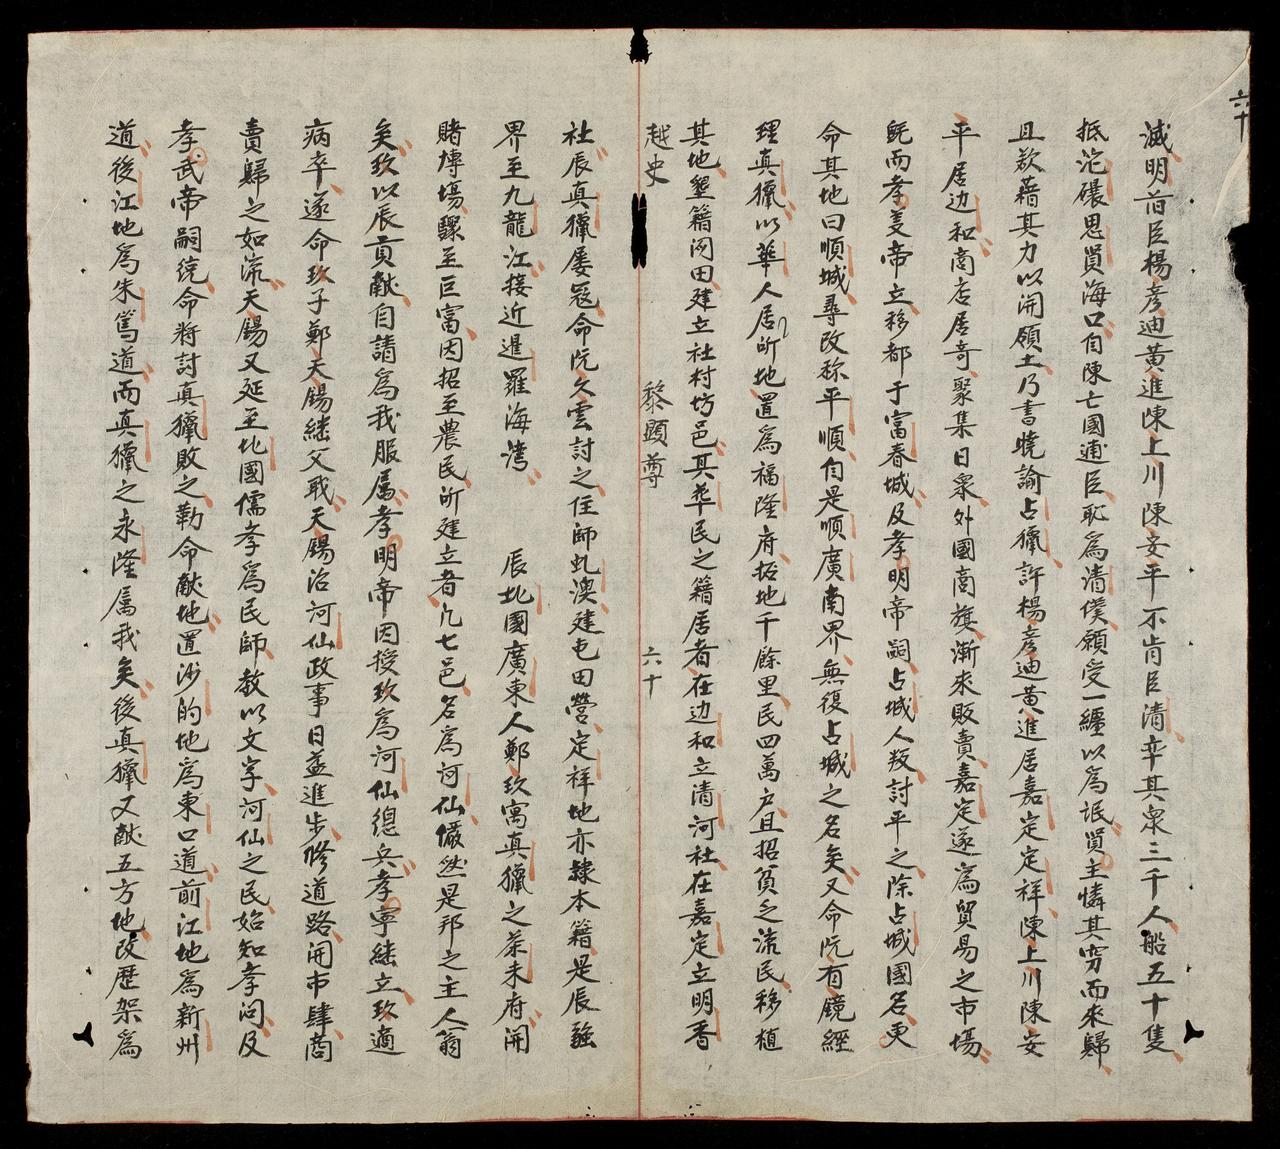 六十
滅明旧臣楊彦迪黃進陳上川陳安平不肯臣清率其衆三千人船五十隻
抵沱㶞思賢海口自陳亡國逋臣恥為清僕願受一纏以為氓賢主憐其窮而來歸
且欲藉其力以開領土乃書曉諭占獵許楊彦迪黃進居嘉定定祥陳上川陳安
平居边和商店居奇聚集日衆外國商旗漸來販賣嘉定遂為貿易之市場
既而孝美帝立移都于富春城及孝明帝嗣占城人叛討平之除占城國名更
命其地曰順城尋改称平順自是順廣南界無復占城之名矣又命阮有鏡經
理真獵以華人居所地置為福隆府拓地千餘里民四萬户且招貧乏流民移植
其地墾籍泻田建立社村坊邑其華民之籍居者在边和立清河社在嘉定立明香
越史 黎顕尊 六十
社辰真獵屡寇命阮久雲討之住師虬澳建屯田營定祥地亦隸本籍是辰疆
界至九龍江接近暹羅海湾 辰北國廣東人鄭玖寓真獵之茶末府開
賭博場驟至巨富因招至農民所建立者凡七邑名為河仙儼然是邦之主人翁
矣玖以辰貢献自請為我服属孝明帝因授玖為河仙總兵孝寧継立玖適
病卒遂命玖子鄭天錫継父戢天錫治河仙政事日益進步修道路開市肆商
賣歸之如流天錫又延至北國儒孝為民師教以文字河仙之民始知孝问及
孝武帝嗣統命將討真獵敗之勒命献地置沙的地為東口道前江地為新州
道後江地為朱篤道而真獵之永隆属我矣後真獵又献五方地改歷架為